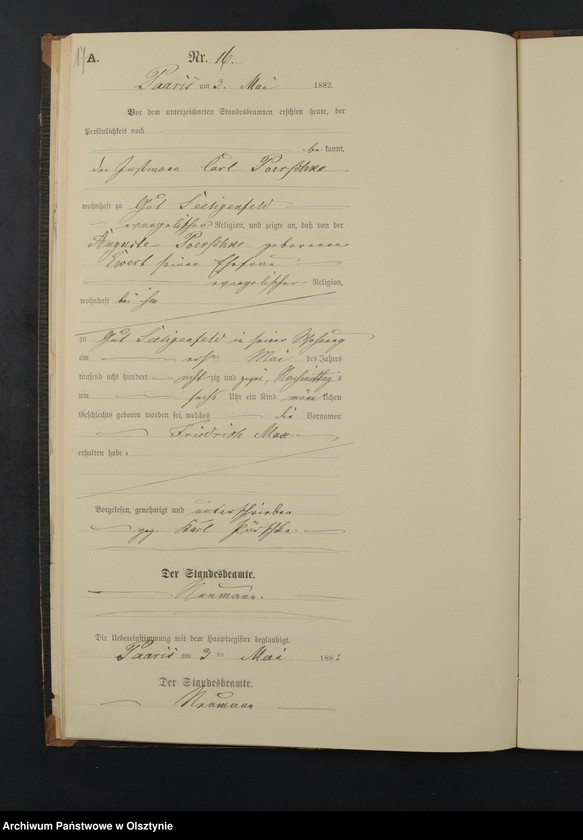 17
A.
Nr. 16.
Paaris am 3. Mai 1882.
Vor dem unterzeichneten Standesbeamten erschien heute, der
Persönlichkeit nach
be kannt,
der Instmann Carl Poerschke
wohnhaft zu Gut Seeligenfeld
evangelischer Religion, und zeigte an, daß von der
Auguste Poerschke geborenen
Ewert seiner Ehefrau
evangelischer Religion,
wohnhaft bei ihm
zu Gut Seeligenfeld in seiner Wohnung
am Mai des Jahres
tausend acht hundert acht zig und zwei, Nachmittag s
um sechs Uhr ein Kind männ lichen
Geschlechts geboren worden sei, welches die Vornamen
Friedrich Max
erhalten habe.
Vorgelesen, genehmigt und unterschrieben
gez. Karl Pörschke.
Der Standesbeamte.
Neumann.
Die Uebereinstimmung mit dem Hauptregister beglaubigt.
Paaris am 3 ten Mai 1882
Der Standesbeamte.
Neumann
Archiwum Państwowe w Olsztynie